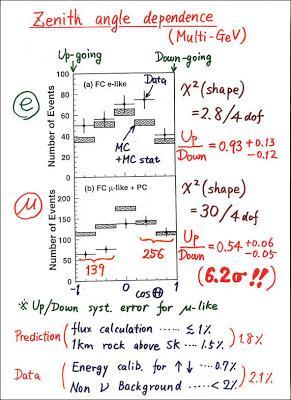 Zenith angle dependence
(Multi-GeV)
Up-going
Down-going
e
Number of Events
100
80
60
40
20
0
(a) FC e-like
Data
MC
+MC stat
χ²(shape)
= 2.8/4 dof
Up/Down = 0.93 +0.13 -0.12
μ
Number of Events
200
150
100
50
0
(b) FC μ-like + PC
139
256
-1
0
1
cosΘ
χ²(shape)
= 30/4 dof
Up/Down = 0.54 +0.06 -0.05
(6.2σ !!)
※ Up/Down syst. error for μ-like
Prediction ( flux calculation ..... ≲ 1% 
1km rock above SK ... 1.5% ) 1.8%
Data ( Energy calib. for ↑↓ ... 0.7%
Non ν Background ..... < 2% ) 2.1%